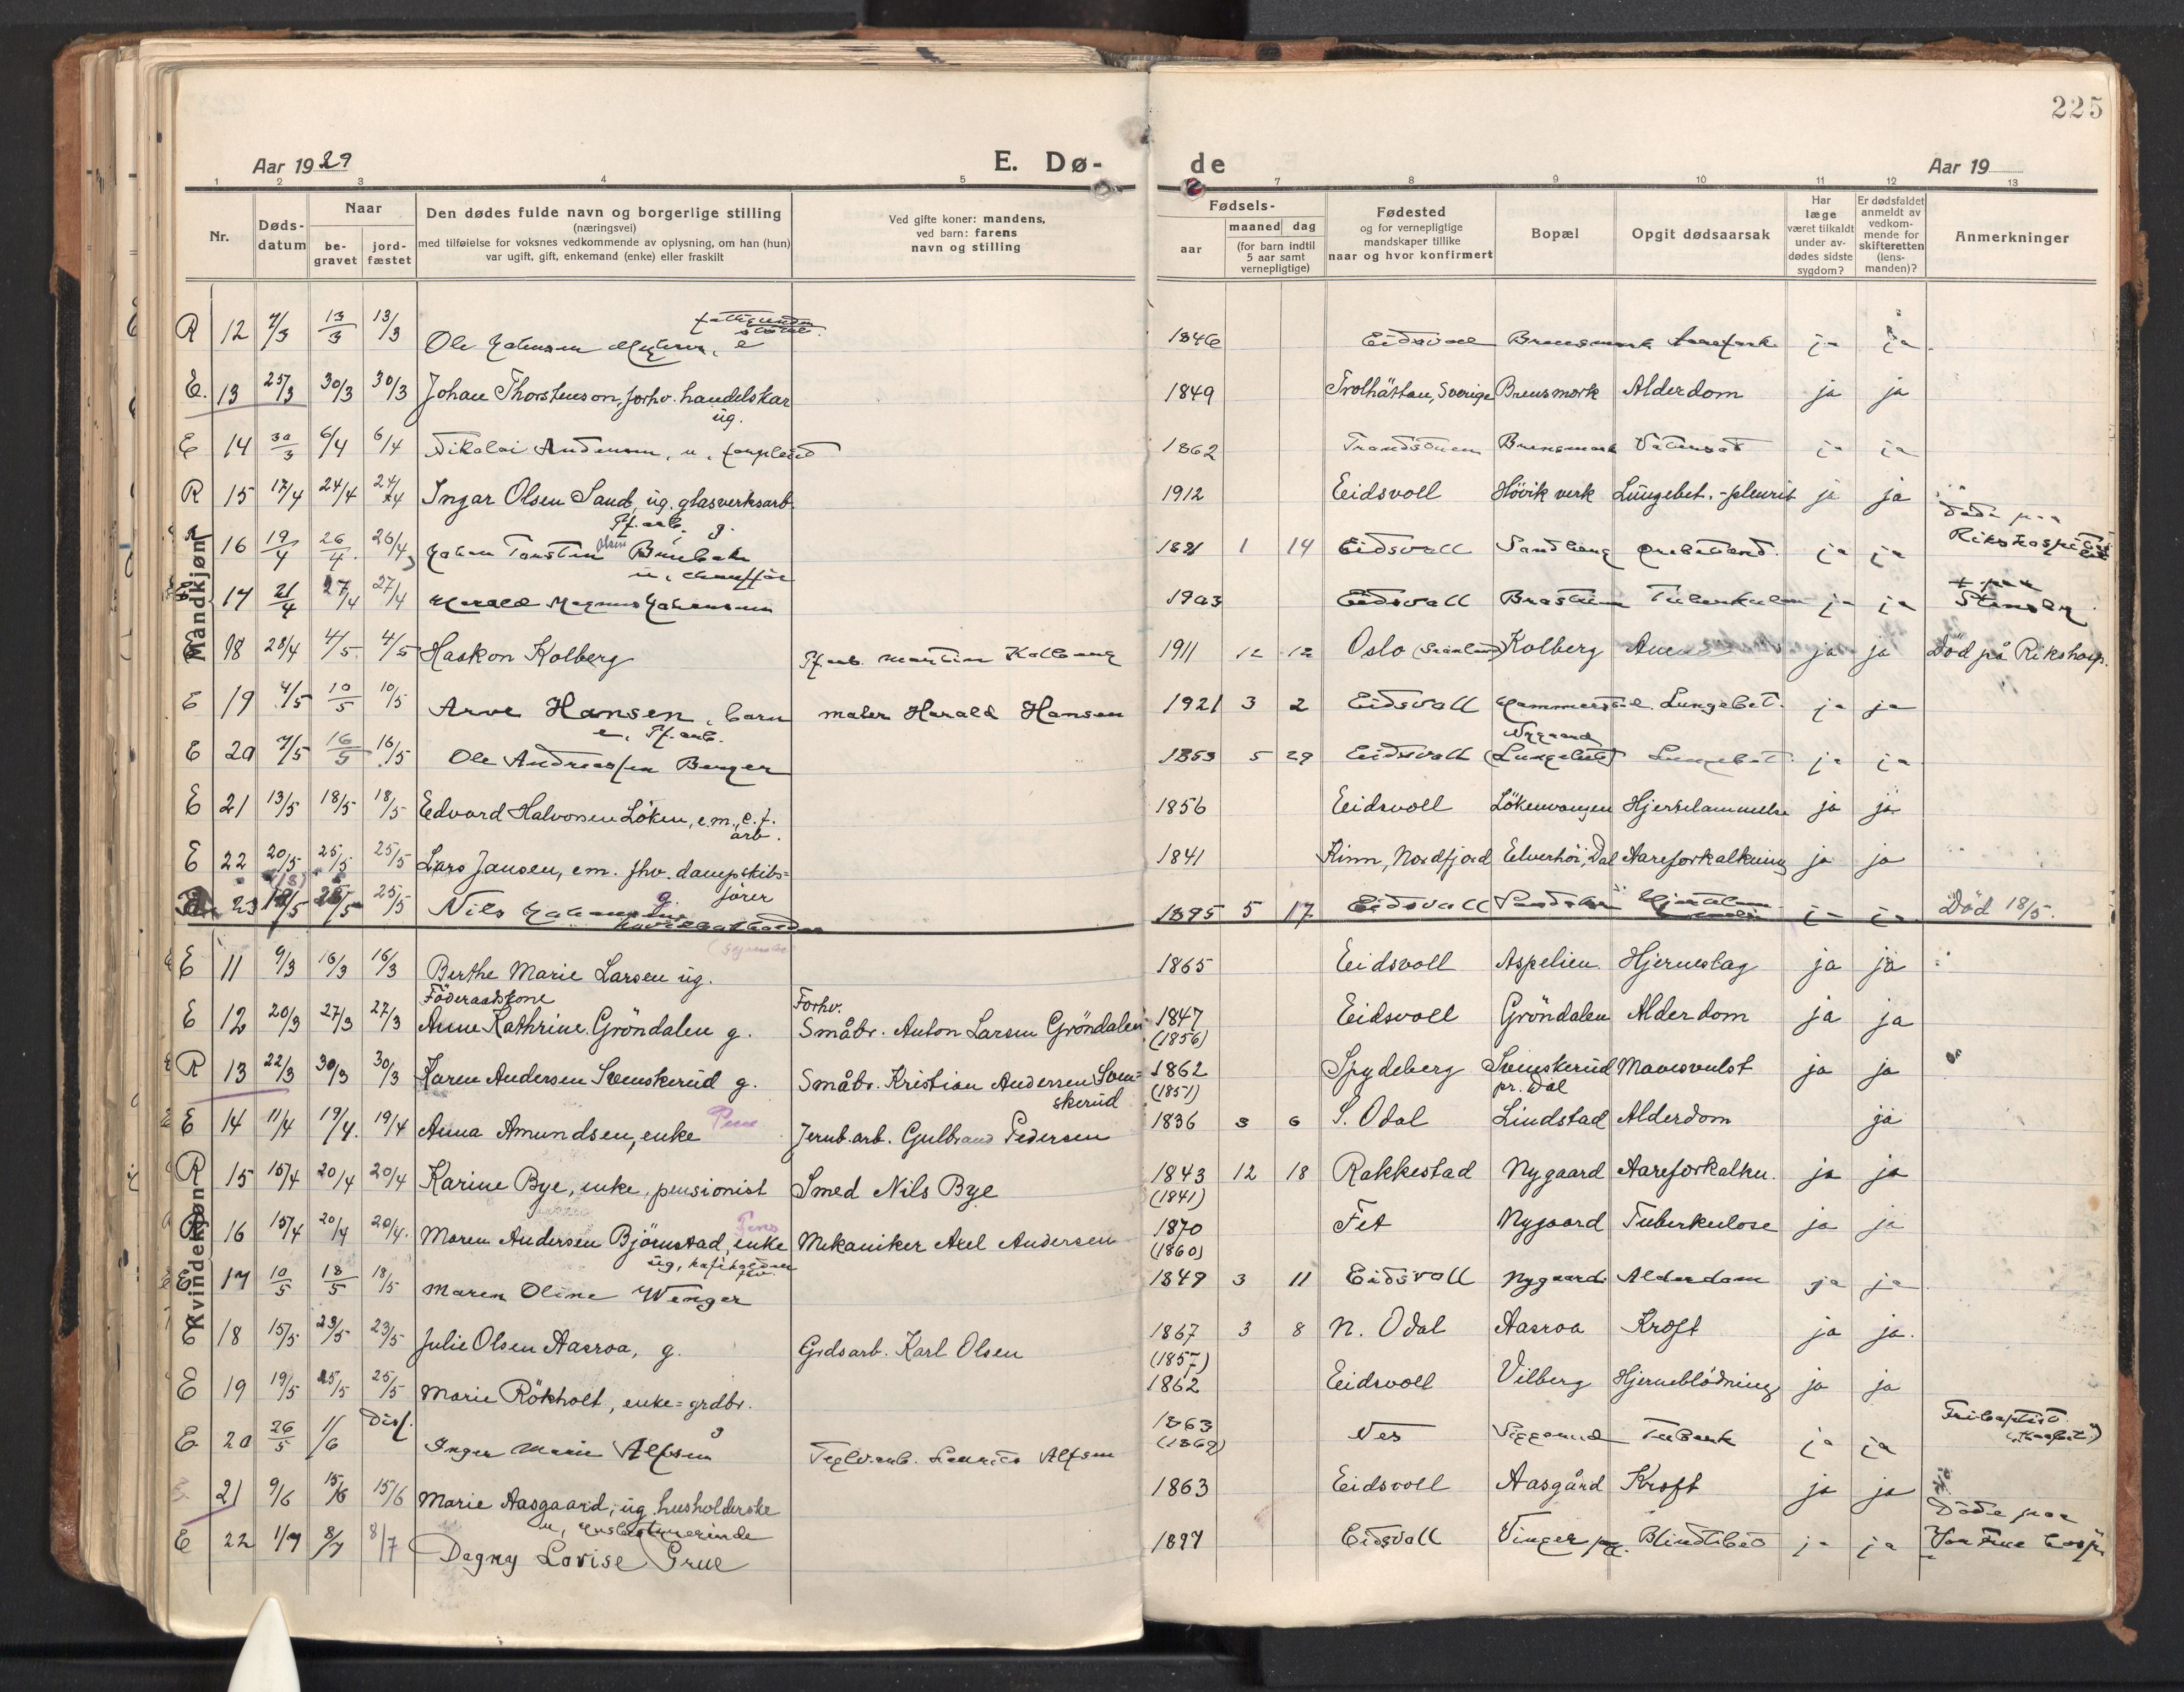 225
Aar 1929
E. Dø-
de
Aar 19
1 2 3 4 5 7 8 9 10 11 12 13
Nr.
Døds-
datum
Naar
be-
gravet
jord-
fæstet
Den dødes fulde navn og borgerlige stilling
(næringsvei)
med tilføielse for voksnes vedkommende av oplysning, om han (hun)
var ugift, gift, enkemand (enke) eller fraskilt
Ved gifte koner: mandens,
ved barn: farens
navn og stilling
Fødsels-
aar
maaned dag
(for barn indtil
5 aar samt
vernepligtige)
Fødested
og for vernepligtige
mandskaper tillike
naar og hvor konfirmert
Bopæl
Opgit dødsaarsak
Har
læge
været tilkaldt
under av-
dødes sidste
sygdom?
Er dødsfaldet
anmeldt av
vedkom-
mende for
skifteretten
(lens-
manden)?
Anmerkninger
Mandkjøn
R 12 7/3 13/3 13/3 Ole 1846 Eidsvoll ja ja
E. 13 25/3 30/3 30/3 Johan Thorstenson, forhv. handelskar 1849 Trolhättan, Sverige Brensmork Alderdom ja ja
ug.
E 14 30/3 6/4 6/4 Nikolai Andersen, u. 1862 ja ja
R 15 17/4 24/4 24/4 Ingar Olsen Sand, ug. glasverksarb. 1912 Eidsvoll Hövik verk Lungebet.-pleurit ja ja
g.
R 16 19/4 26/4 26/4 Olsen 1891 1 14 Eidsvoll Sandberg ja ja Døde paa
Rikshospitalet
u, chauffør
E 17 21/4 27/4 27/4 Harald Magnus Johansen 1903 Eidsvoll ja ja Stensby
E 18 28/4 4/5 4/5 Haakon Kolberg Martin Kolberg 1911 12 12 Oslo Kolberg ja ja Död på Rikshosp.
E 19 4/5 10/5 10/5 Arve Hansen, barn maler Harald Hansen 1921 3 2 Eidsvoll Lungebet. ja ja
E 20 7/5 16/5 16/5 Ole Andreassen Berger 1853 5 29 Eidsvoll Nygaard (Lungebet) Lungebet. ja ja
E 21 13/5 18/5 18/5 Edvard Halvorsen Löken, e.m., e.f. 1856 Eidsvoll Lökenvangen Hjertelammelse ja ja
arb.
E 22 20/5 25/5 25/5 Lars Jansen, em. fhv. dampskibs= 1841 Kinn, Nordfjord Elverhöi, Dal Aareforkalkning ja ja
förer
23 25/5 25/5 Nils g. 1895 5 17 Eidsvoll ja ja Död 18/5.
Kvindekjøn
E 11 9/3 16/3 16/3 Berthe Marie Larsen ug. 1865 Eidsvoll Aspelien Hjerneslag ja ja
Föderaadskone Forhv.
E 12 20/3 27/3 27/3 Anne Kathrine Gröndalen g. Småbr. Anton Larsen Gröndalen 1847 Eidsvoll Gröndalen Alderdom ja ja
(1856)
R 13 22/3 30/3 30/3 Karen Andersen Svenskerud g. Småbr. Kristian Andersen Sven= 1862 Spydeberg Svenskerud Mavesvulst ja ja
skerud (1851) pr. Dal
E 14 11/4 19/4. 19/4 Anna Amundsen, enke Jernb.arb. Gulbrand Pedersen 1836 3 6 S. Odal Lindstad Alderdom ja
R 15 15/4 20/4 20/4 Karine Bye, enke, pensionist Smed Nils Bye 1843 12 18 Rakkestad Nygaard Aareforkalkn. ja ja
(1841)
R 16 15/4 20/4 20/4. Maren Andersen Björnstad, enke Mekaniker Axel Andersen 1870 Fet Nygaard Tuberkulose ja ja
(1860)
E 17 10/5 18/5 18/5 Maren Oline Wenger 1849 3 11 Eidsvoll Nygaard Alderdom ja ja
E 18 15/5 23/5 23/5 Julie Olsen Aasroa, g. Grdsarb. Karl Olsen 1867 3 8 N. Odal Aasroa Kræft ja ja.
(1857)
E 19 19/5 25/5 25/5 Marie Rökholt, enke=grdbr. 1862 Eidsvoll Vilberg Hjerneblödning ja ja
E 20 26/5 1/6 Inger Marie Alfsen Teglv.arb. Alfsen 1863 Nes ja ja
(1869)
21 9/6 15/6 15/6 Marie Aasgaard, ug. husholderske 1863 Eidsvoll Aasgård Kræft ja ja
E 22 1/7 8/7 8/7 Dagny Lovise Grue 1897 Eidsvoll Vinger Blindtb. ja ja Döde paa
Vor Frue hosp.